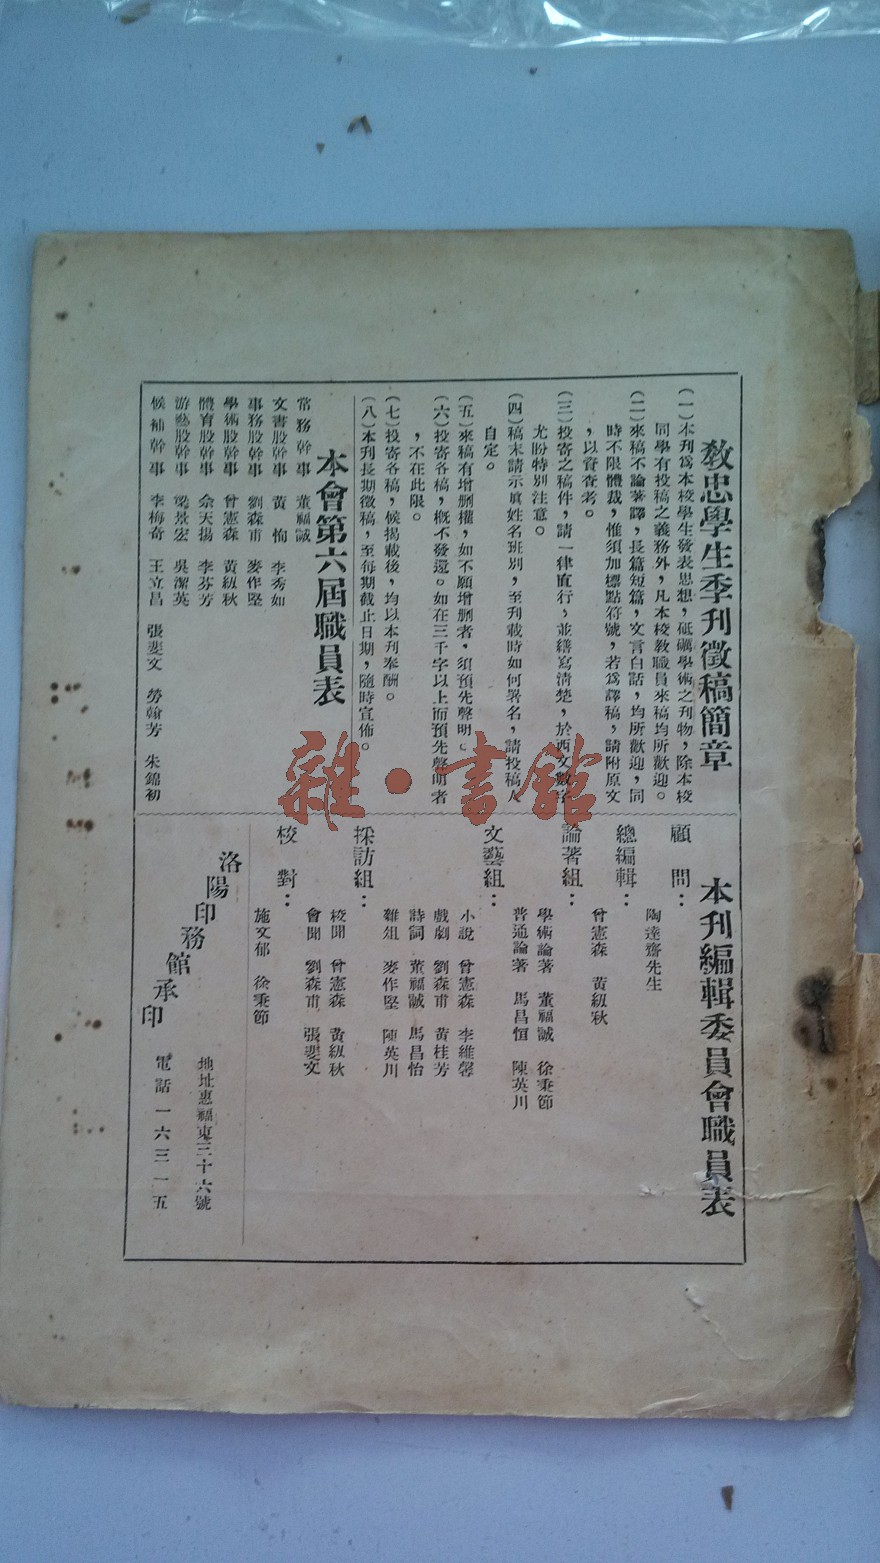 教忠學生季刊徵稿簡章
(一)本刊為本校學生發表思想,砥礪學術之刊物,除本校
同學有投稿之義務外,凡本校教職員來稿均所歡迎。
(二)來稿不論著譯,長篇短篇,文言白話,均所歡迎,同
時不限體裁,惟須加標點符號,若為譯稿,請附原文
,以資查考。
(三)投寄之稿件,請一律直行,並繕寫清楚,於西文數字
尤盼特別注意。
(四)稿末請示真姓名班別,至刊載時如何署名,請投稿人
自定。
(五)來稿有增删權,如不願增删者,須預先聲明。
(六)投寄各稿,概不發還。如在三千字以上而預先聲明者
,不在此限。
(七)投寄各稿,候揭載後,均以本刊奉酬。
(八)本刊長期徵稿,至每期截止日期,隨時宣佈。
本會第六屆職員表
常務幹事 董福誠
文書股幹事 黃恂 李秀如
事務股幹事 劉森甫 麥作堅
學術股幹事 曾憲森 黃級秋
體育股幹事 佘天揚 李芬芳
游藝股幹事 梁景宏 吳潔英
候補幹事 李梅奇 王立昌 張斐文 勞翰芳 朱錦初
本刊編輯委員會職員表
顧問:
陶達齋先生
總編輯:
曾憲森 黃級秋
論著組:
學術論著 董福誠 徐秉節
普通論著 馬昌恒 陳英川
文藝組:
小說 曾憲森 李維馨
戲劇 劉森甫 黃桂芳
詩詞 董福誠 馬昌怡
雜俎 麥作堅 陳英川
採訪組:
校聞 曾憲森 黃級秋
會聞 劉森甫 張斐文
校對:
施文郁 徐秉節
洛陽印務館承印
地址惠福東三十六號
電話一六三一五
雜·書館